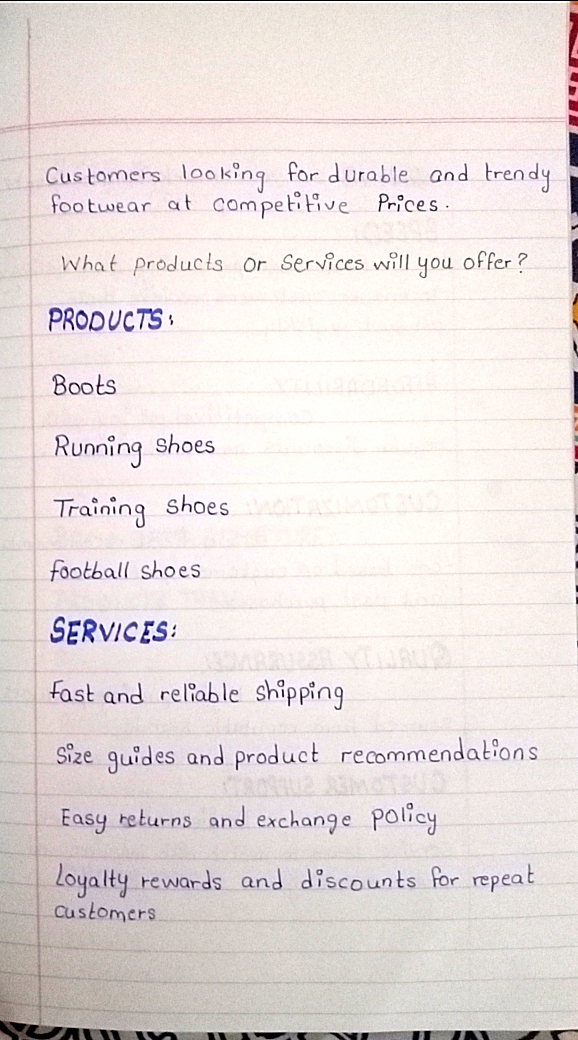 Customers looking for durable and trendy
footwear at competitive Prices.
What products or Services will you offer?
PRODUCTS:
Boots
Running shoes
Training shoes
football shoes
SERVICES:
fast and reliable shipping
Size guides and product recommendations
Easy returns and exchange policy
Loyalty rewards and discounts for repeat
customers